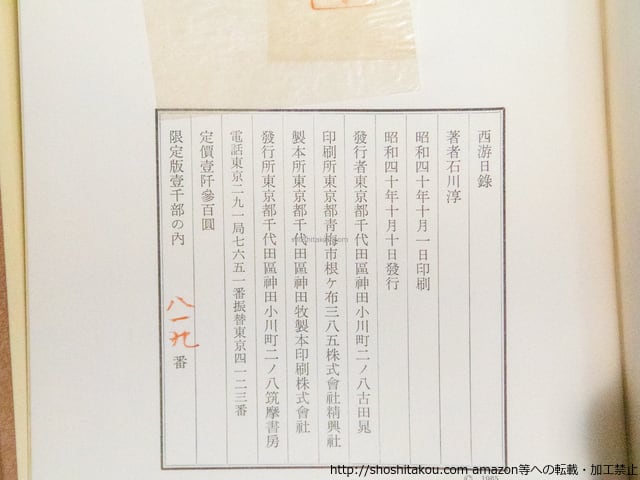 西游日錄
著者石川淳
昭和四十年十月一日印刷
昭和四十年十月十日發行
發行者東京都千代田區神田小川町二ノ八古田晁
印刷所東京都靑梅市根ケ布三八五株式會社精興社
製本所東京都千代田區神田牧製本印刷株式會社
發行所東京都千代田區神田小川町二ノ八筑摩書房
電話東京二九一局七六五一番振替東京四一二三番
定價壹阡參百圓
限定版壹千部の內 八一九 番
© 1965
shoshitakou.com
http://shoshitakou.com amazon等への転載・加工禁止